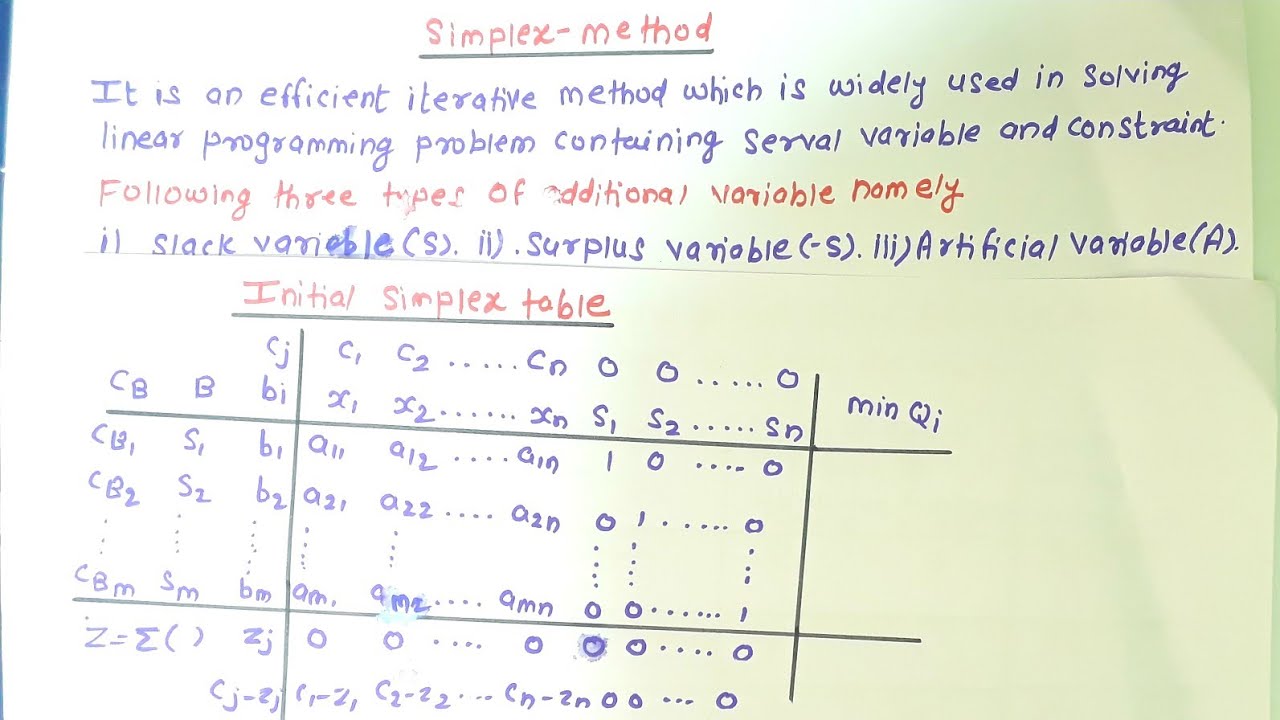 Simplex-method
It is an efficient iterative method which is widely used in solving
linear programming problem containing serval variable and constraint.
Following three types of additional variable namely
i) Slack variable (S). ii). Surplus variable (-S). iii) Artificial variable (A).
Initial simplex table
Cj C1 C2 ..... Cn 0 0 ..... 0
CB B bi x1 x2 ...... xn S1 S2 ..... Sn min Qi
CB1 S1 b1 a11 a12 .... a1n 1 0 .... 0
CB2 S2 b2 a21 a22 .... a2n 0 1 ...... 0
CBm Sm bm am1 am2 .... amn 0 0 ...... 1
Z=Σ( ) Zj 0 0 .... 0 0 0 .... 0
Cj-Zj C1-Z1 C2-Z2 ... Cn-Zn 0 0 ... 0